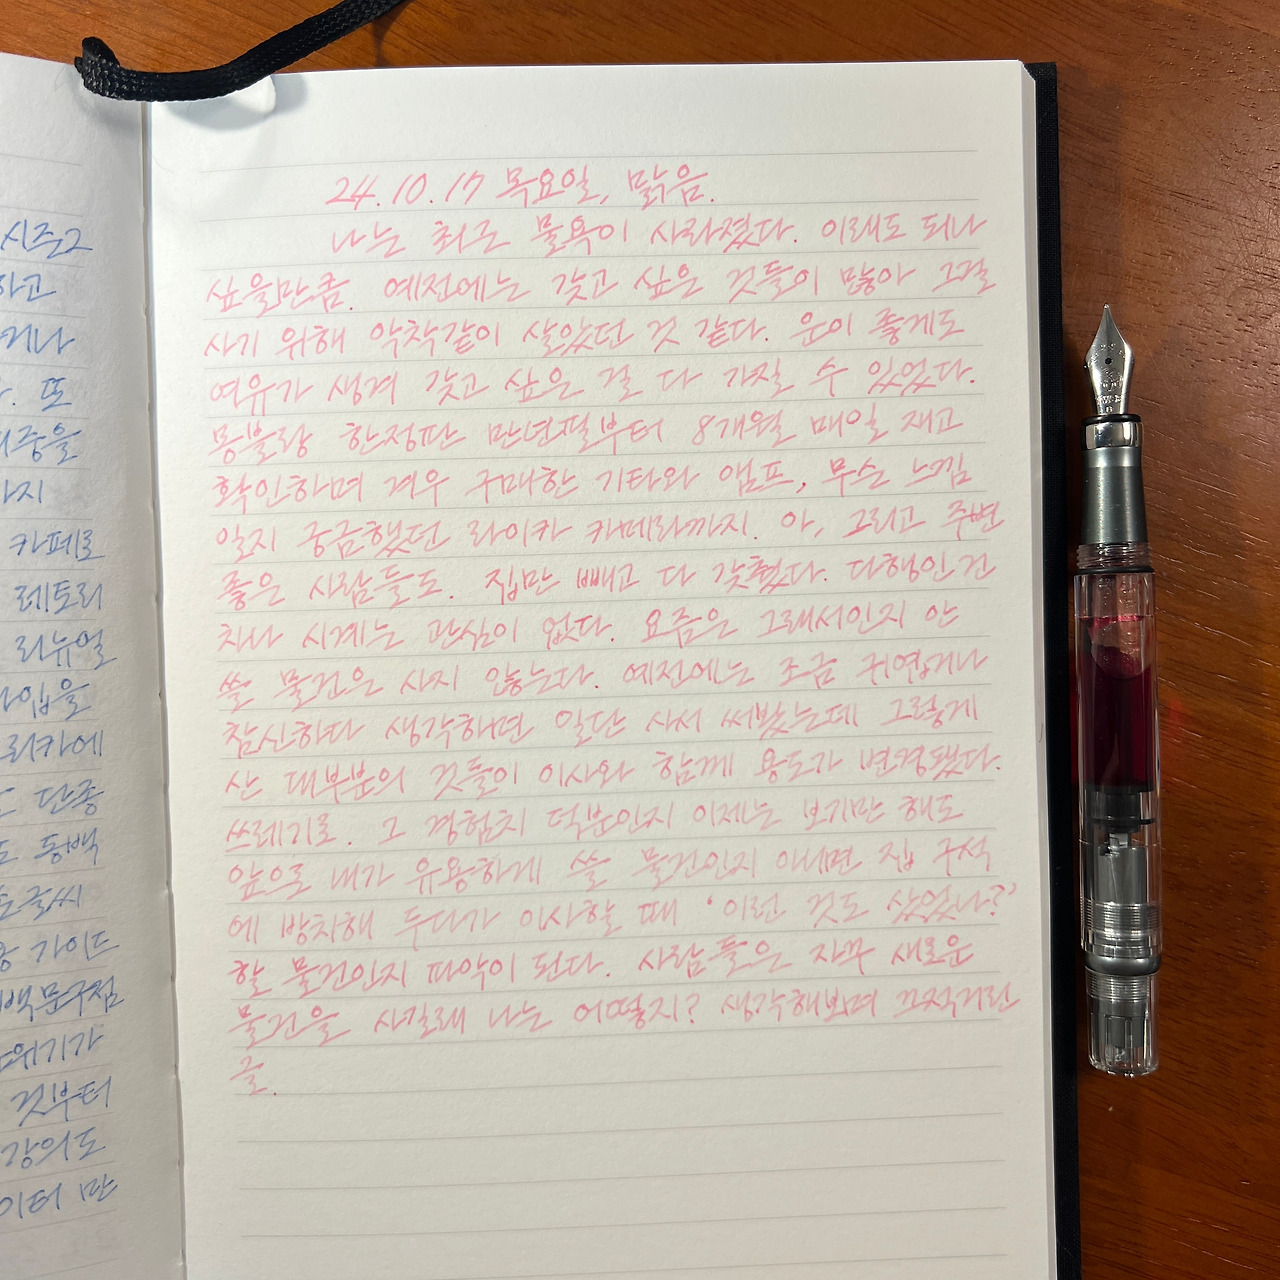 시즌2
하고
거나
. 또
중을
까지
카페로
레토리
리뉴얼
타입을
리카에
도 단종
도 동백
손글씨
용 가이드
백문구점
분위기가
것부터
강의도
이터 만
24.10.17 목요일, 맑음.
나는 최근 물욕이 사라졌다. 이래도 되나
싶을만큼. 예전에는 갖고 싶은 것들이 많아 그걸
사기 위해 악착같이 살았던 것 같다. 운이 좋게도
여유가 생겨 갖고 싶은 걸 다 가질 수 있었다.
몽블랑 한정판 만년필부터 8개월 매일 재고
확인하며 겨우 구매한 기타와 앰프, 무슨 느낌
일지 궁금했던 라이카 카메라까지. 아, 그리고 주변
좋은 사람들도. 집만 빼고 다 갖췄다. 다행인건
차나 시계는 관심이 없다. 요즘은 그래서인지 안
쓸 물건은 사지 않는다. 예전에는 조금 귀엽거나
참신하다 생각하면 일단 사서 써봤는데 그렇게
산 대부분의 것들이 이사와 함께 용도가 변경됐다.
쓰레기로. 그 경험치 덕분인지 이제는 보기만 해도
앞으로 내가 유용하게 쓸 물건인지 아니면 집 구석
에 방치해 두다가 이사할 때 '이런 것도 샀었나?'
할 물건인지 파악이 된다. 사람들은 자꾸 새로운
물건을 사길래 나는 어떻지? 생각해보며 끄적거린
글.